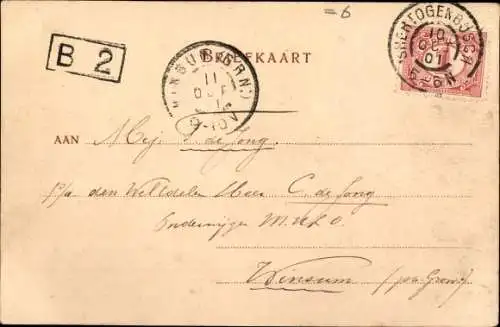 =6
BRIEFKAART
B 2
'SHERTOGENBOSCH
10 OCT 01
5-6N
WINSUM (GRN)
11 OCT 1
9-10V
AAN Mej. de Jong.
p/a den Weledelen Heer C. de Jong
Onderwijzer M.U.L.O.
Winsum (prov. Gron.)